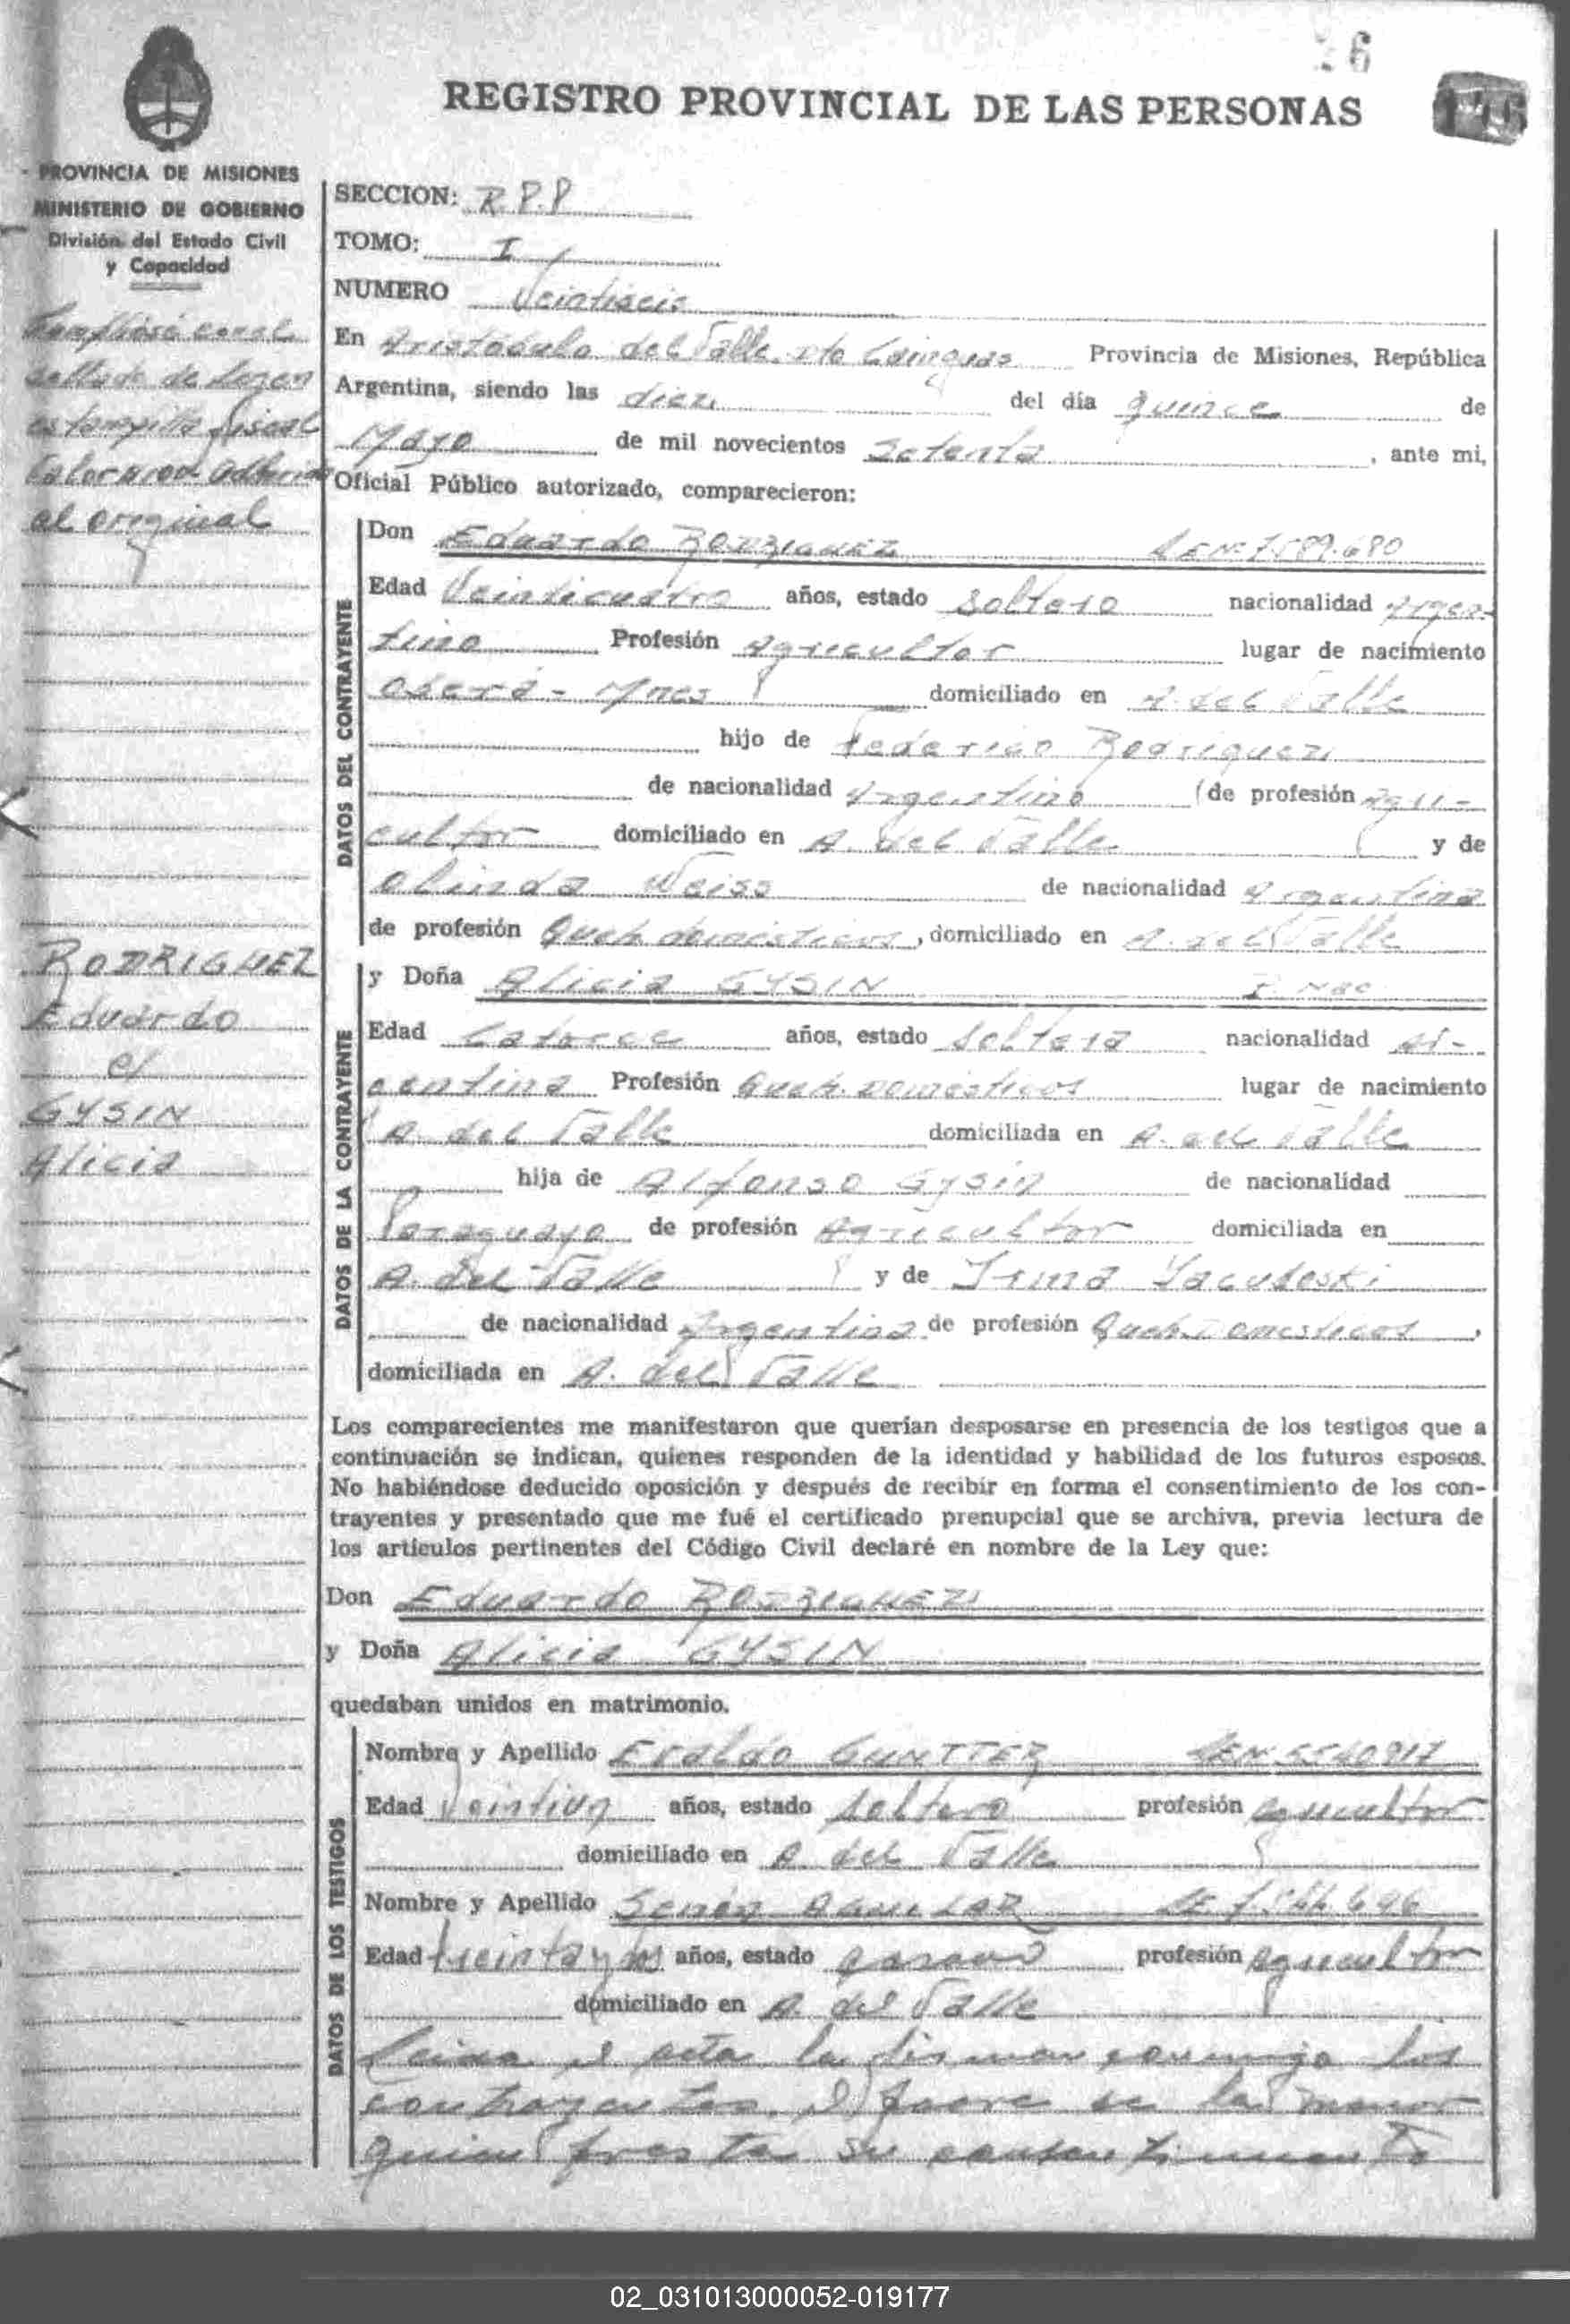 26
REGISTRO PROVINCIAL DE LAS PERSONAS
146
PROVINCIA DE MISIONES
MINISTERIO DE GOBIERNO
División del Estado Civil
y Capacidad
sellado de
estampilla fiscal
el original
RODRIGUEZ
Eduardo
c/
GYSIN
Alicia
SECCION: R.P.P
TOMO: I
NUMERO Veintiseis
En Aristóbulo del Valle Dto Cainguas Provincia de Misiones, República
Argentina, siendo las diez del día quince de
Mayo de mil novecientos Setenta, ante mi,
Oficial Público autorizado, comparecieron:
DATOS DEL CONTRAYENTE
Don Eduardo RODRIGUEZ L.E.Nº 7.589.680
Edad Veinticuatro años, estado soltero nacionalidad Argen-
tino Profesión Agricultor lugar de nacimiento
Oberá - Mnes domiciliado en A. del Valle
hijo de Federico Rodriguez
de nacionalidad Argentino de profesión Agri-
cultor domiciliado en A. del Valle y de
Olinda Weiss de nacionalidad Argentina
de profesión Queh. domésticos, domiciliado en A. del Valle
DATOS DE LA CONTRAYENTE
y Doña Alicia GYSIN
Edad Catorce años, estado Soltera nacionalidad Ar-
gentina Profesión Queh. Domésticos lugar de nacimiento
A. del Valle domiciliada en A. del Valle
hija de Alfonso Gysin de nacionalidad
Paraguayo de profesión Agricultor domiciliada en
A. del Valle y de Irma Yacuboski
de nacionalidad Argentina de profesión Queh. Domesticos,
domiciliada en A. del Valle
Los comparecientes me manifestaron que querían desposarse en presencia de los testigos que a
continuación se indican, quienes responden de la identidad y habilidad de los futuros esposos.
No habiéndose deducido oposición y después de recibir en forma el consentimiento de los con-
trayentes y presentado que me fué el certificado prenupcial que se archiva, previa lectura de
los artículos pertinentes del Código Civil declaré en nombre de la Ley que:
Don Eduardo RODRIGUEZ
y Doña Alicia GYSIN
quedaban unidos en matrimonio.
DATOS DE LOS TESTIGOS
Nombre y Apellido Eraldo GUNTTER L.E.Nº 5540917
Edad Veintiun años, estado soltero profesión agricultor
domiciliado en A. del Valle
Nombre y Apellido AGUILAR L.E. 7.544.696
Edad treinta y dos años, estado casado profesión agricultor
domiciliado en A. del Valle
Leida el acta la firman conmigo los
contrayentes, el padre de la menor
quien presta su consentimiento
02_031013000052-019177